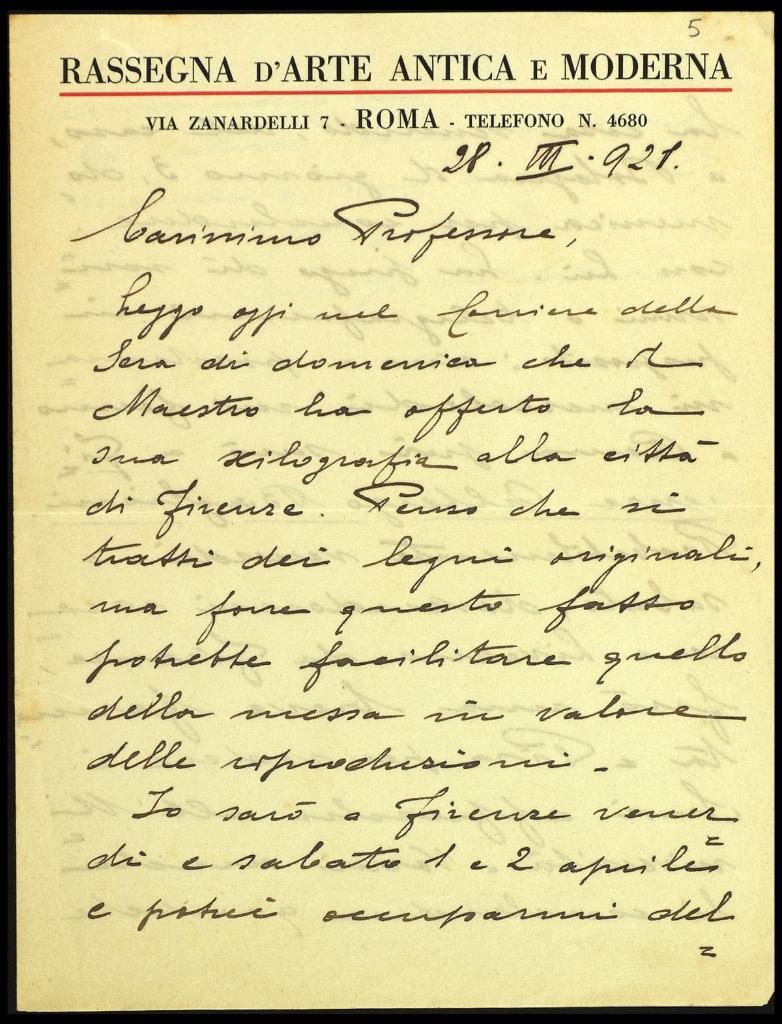 5
RASSEGNA D'ARTE ANTICA E MODERNA
VIA ZANARDELLI 7 - ROMA - TELEFONO N. 4680
28. III. 921.
Carissimo Professore,
Leggo oggi nel Corriere della
Sera di domenica che il
Maestro ha offerto la
sua xilografia alla città
di Firenze. Penso che si
tratti dei legni originali,
ma forse questo fatto
potrebbe facilitare quello
della messa in valore
delle riproduzioni.
Io sarò a Firenze vener
di e sabato 1 e 2 aprile
e potrei occuparmi del
=